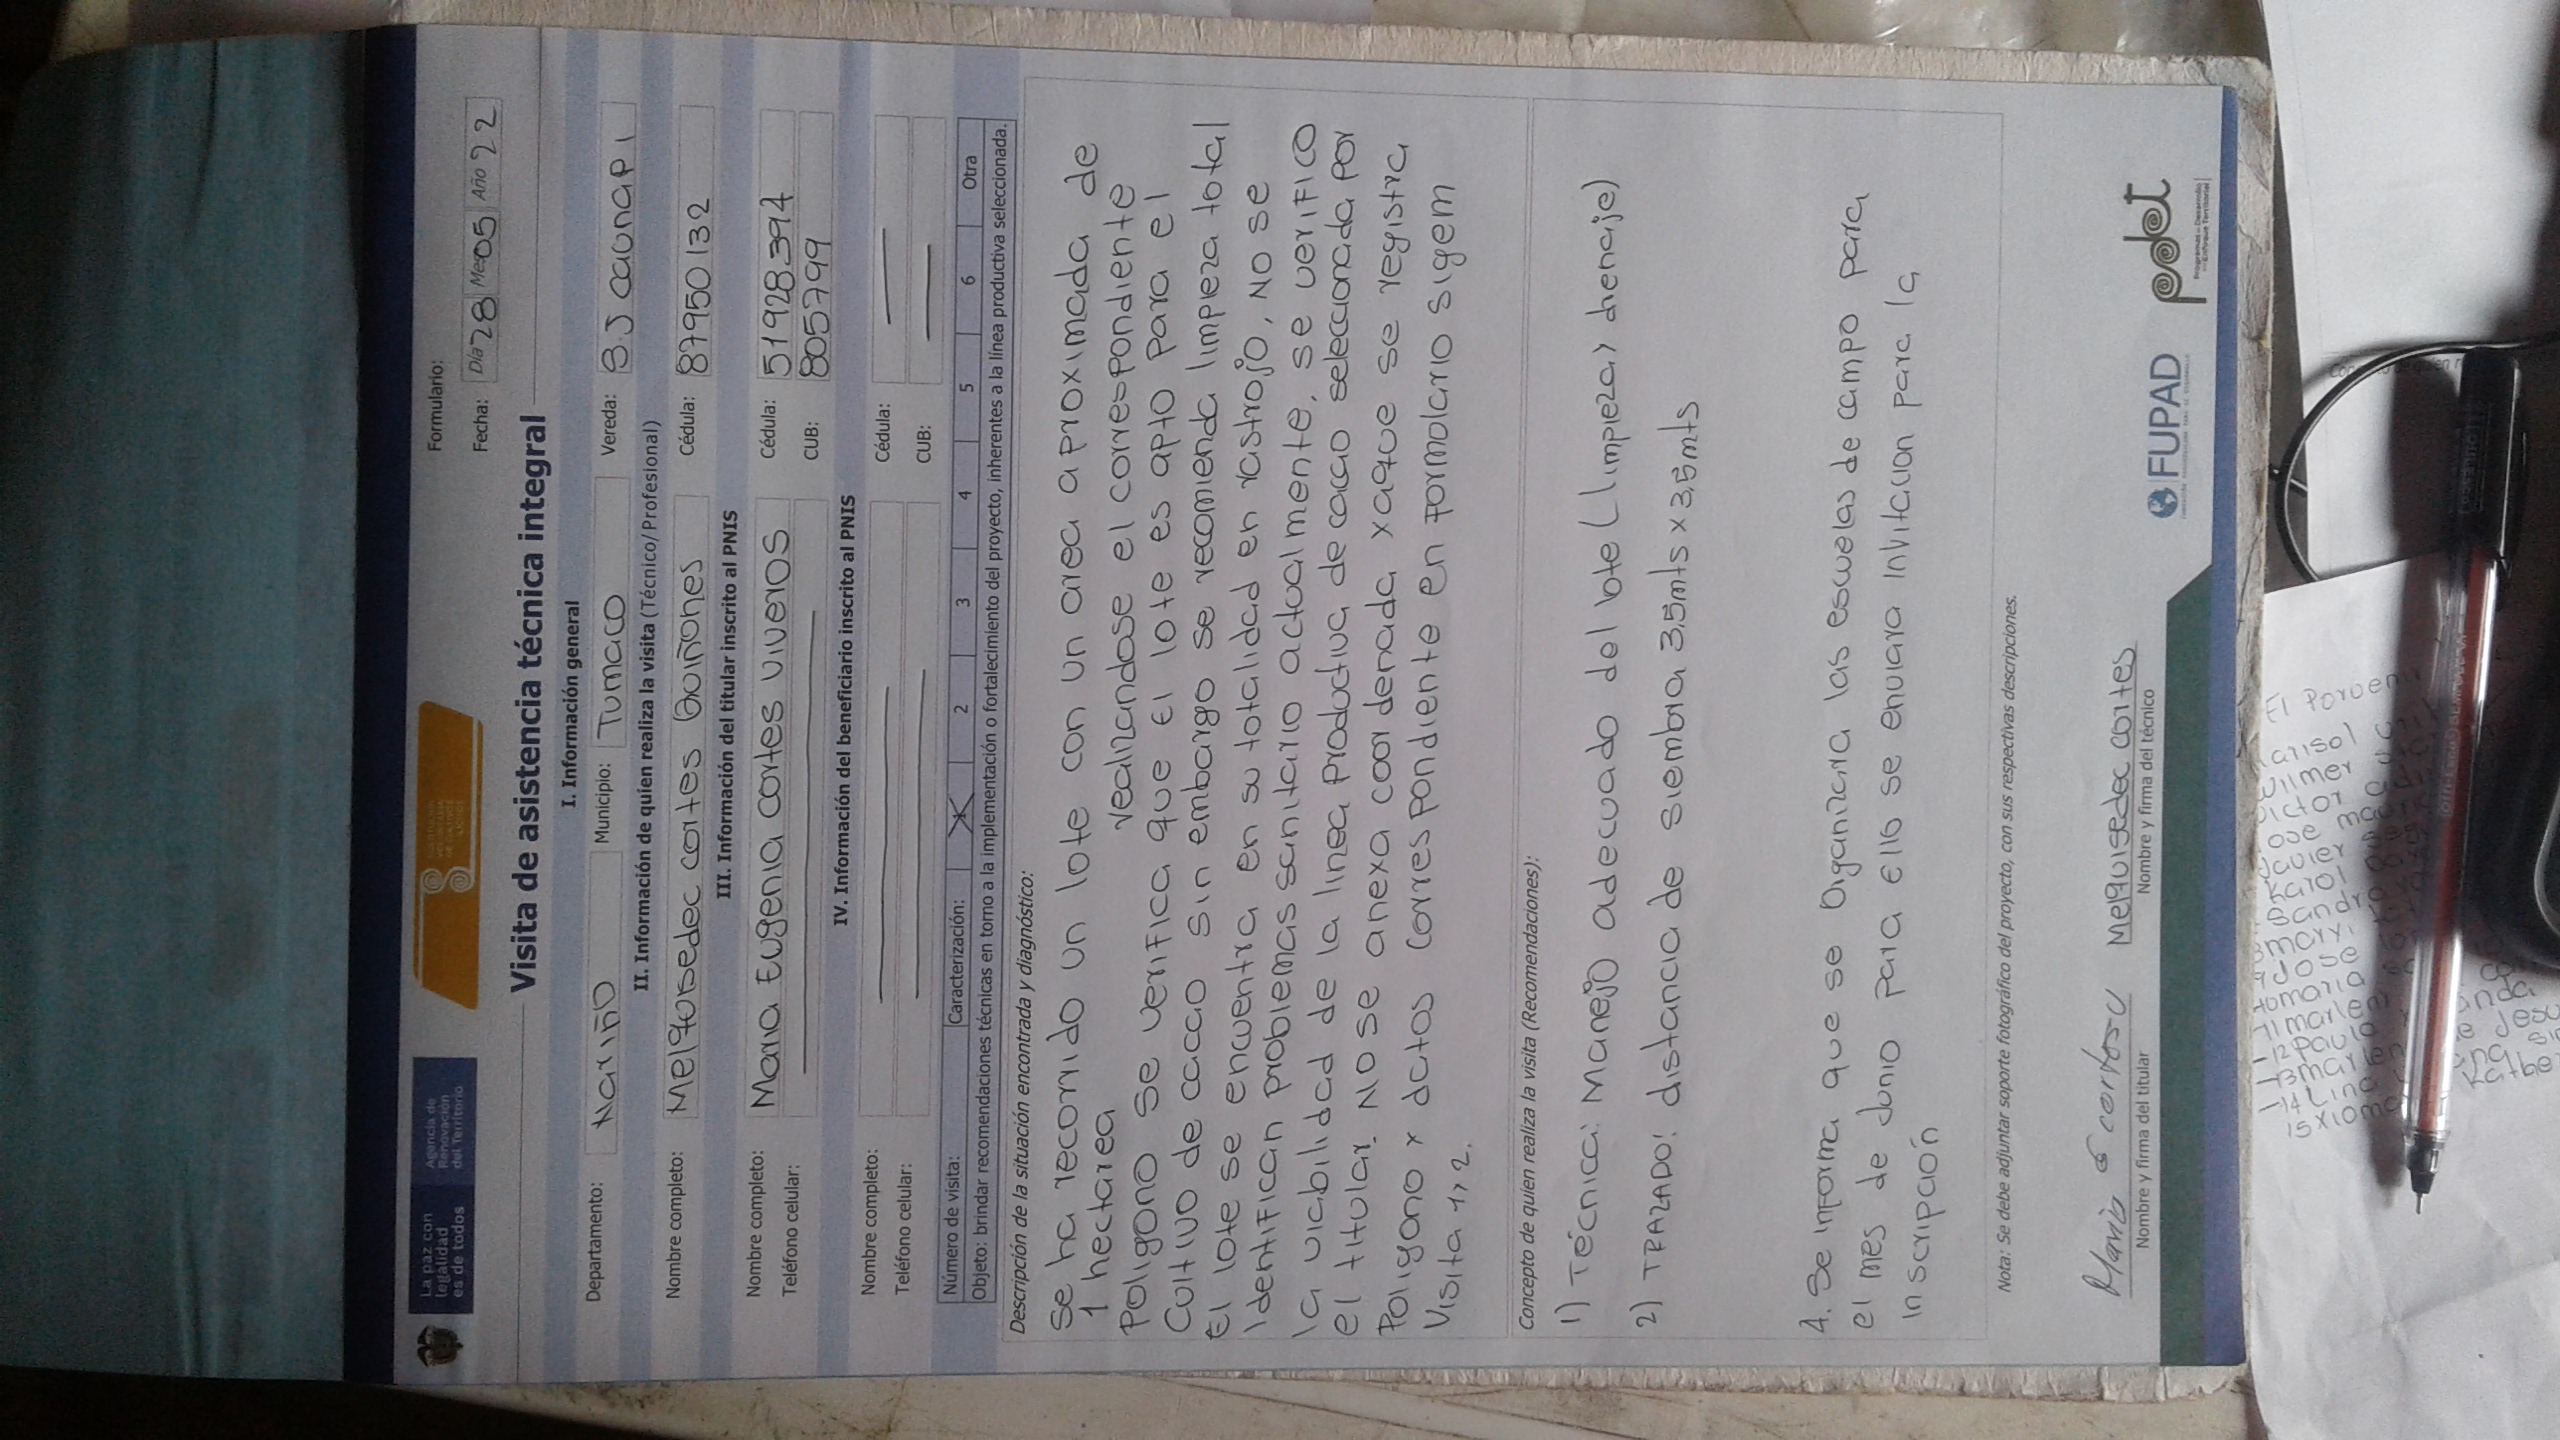 La paz con
legalidad
es de todos
Agencia de
Renovación
del Territorio
SUSTITUCIÓN
VOLUNTARIA
DE CULTIVOS
ILÍCITOS
Formulario:
Fecha: Día 28 Mes 05 Año 22
Visita de asistencia técnica integral
I. Información general
Departamento: NariñO Municipio: Tumaco Vereda: S.J caunapi
II. Información de quien realiza la visita (Técnico/Profesional)
Nombre completo: Melquisedec cortes Quiñones Cédula: 87950132
III. Información del titular inscrito al PNIS
Nombre completo: Maria Eugenia cortes viveros Cédula: 51928394
Teléfono celular: CUB: 805799
IV. Información del beneficiario inscrito al PNIS
Nombre completo: Cédula:
Teléfono celular: CUB:
Número de visita: Caracterización: X 2 3 4 5 6 Otra
Objeto: brindar recomendaciones técnicas en torno a la implementación o fortalecimiento del proyecto, inherentes a la línea productiva seleccionada.
Descripción de la situación encontrada y diagnóstico:
Se ha recorrido un lote con un area aproximada de
1 hectarea realizandose el correspondiente
Poligono se verifica que El lote es apto para el
Cultivo de cacao sin embargo se recomienda limpieza total
El lote se encuentra en su totalidad en rastrojo, NO se
Identifican problemas sanitario actualmente, se verifico
la viabilidad de la linea productiva de cacao seleccionada por
el titular. NO se anexa coordenada ya que se registra
Poligono y datos correspondiente en formulario sigem
Visita 1 y 2.
Concepto de quien realiza la visita (Recomendaciones):
1) Técnica: Manejo adecuado del lote (limpieza y drenaje)
2) TRAZADO: distancia de siembra 3,5mts x 3,5mts
4. Se informa que se Organizara las escuelas de campo para
el mes de Junio para Ello se enviara invitacion para la
inscripción
Nota: Se debe adjuntar soporte fotográfico del proyecto, con sus respectivas descripciones.
Maria E cortes v
Melquisedec cortes
Nombre y firma del titular
Nombre y firma del técnico
FUPAD
pdet
Programas de Desarrollo
con Enfoque Territorial
El Porveni
arisol
wilmer
victor
Jose
Javier
Karol
Sandro
Jose
10 maria
11 marlen
12 Paulo
13 mar
14 Lina
15 xioma